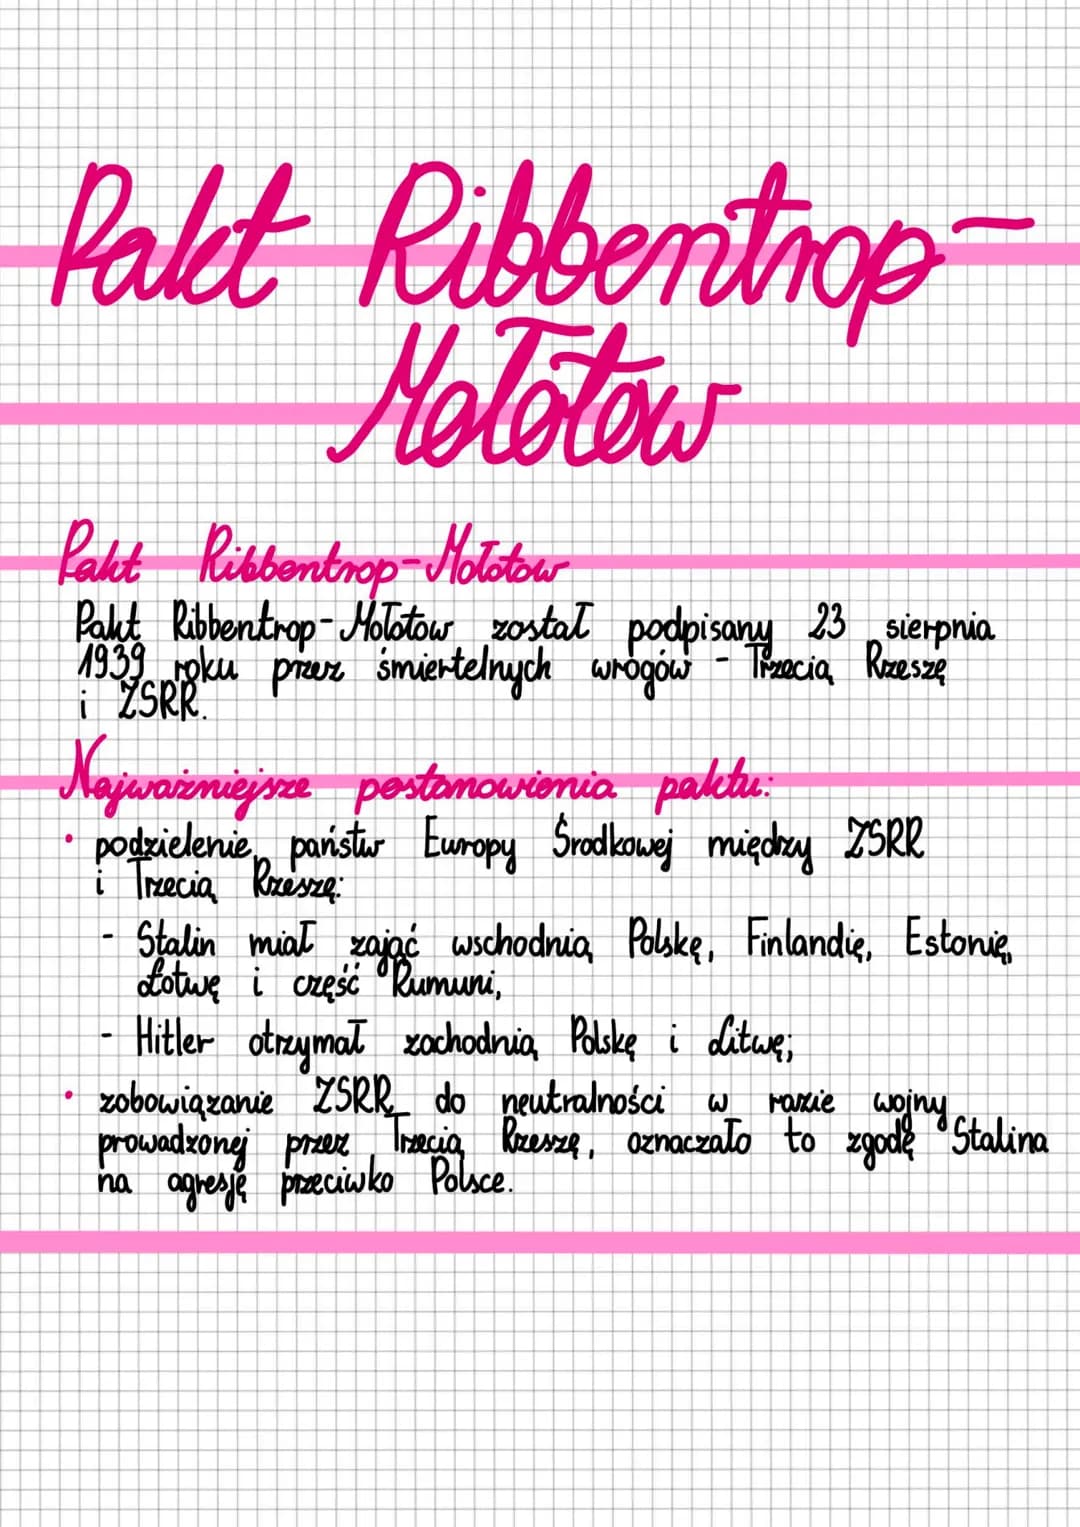 Pakt Ribbentrop-
Mołotow
Pakt Ribbentrop-Mołotow
Pakt Ribbentrop-Mołotow został podpisany 23 sierpnia
1939 roku przez śmiertelnych wrogów - Trzecią Rzeszę
i ZSRR.
Najważniejsze postanowienia paktu:
• podzielenie państw Europy Środkowej między ZSRR
i Trzecią Rzeszę:
- Stalin miał zająć wschodnią Polskę, Finlandię, Estonię,
Łotwę i część Rumuni,
- Hitler otrzymał zachodnią Polskę i Litwę;
• zobowiązanie ZSRR do neutralności w razie wojny
prowadzonej przez Trzecią Rzeszę, oznaczało to zgodę Stalina
na agresję przeciwko Polsce.